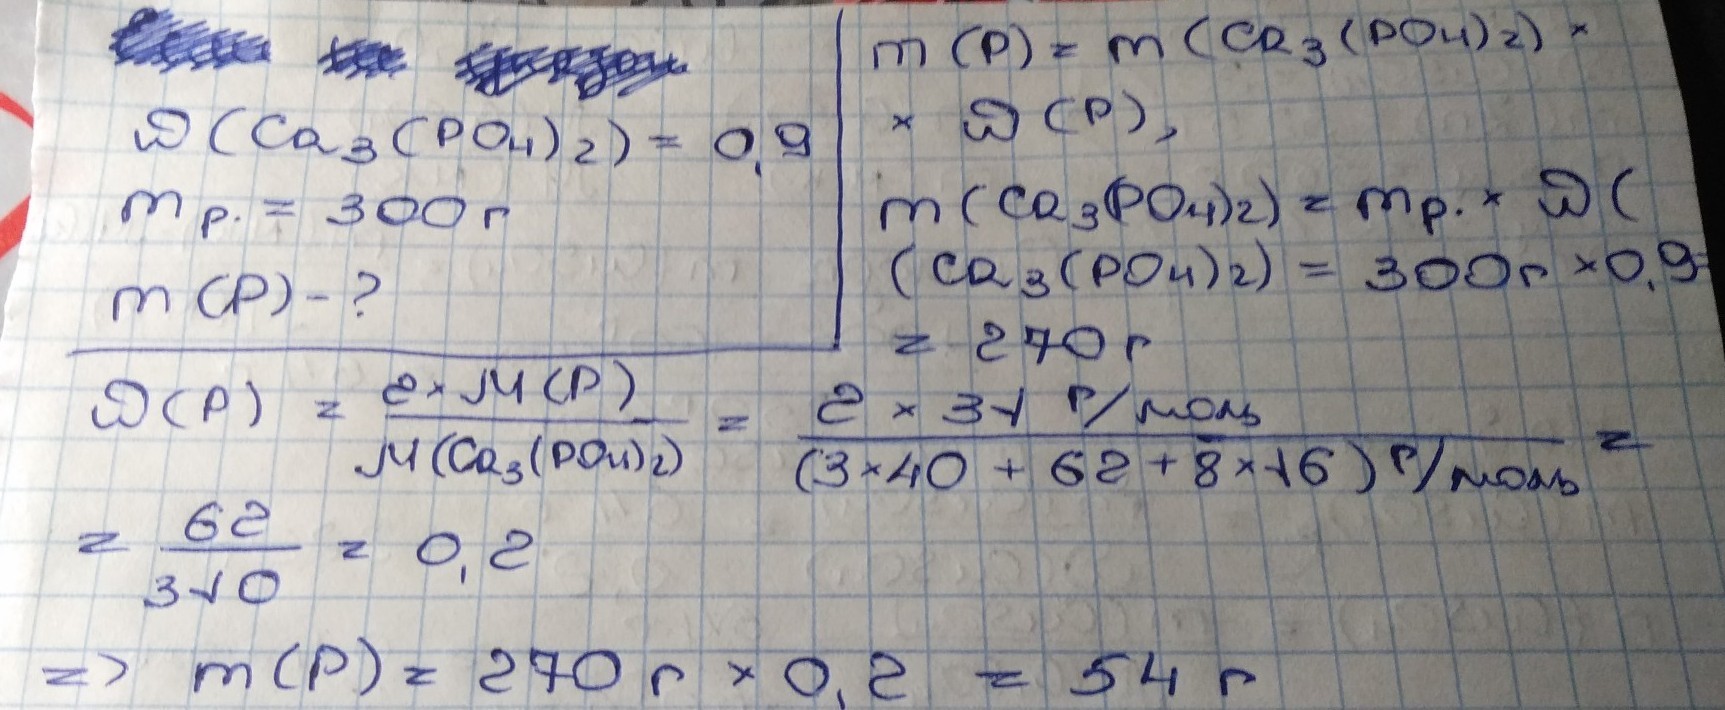 ω(Ca₃(PO₄)₂) = 0,9
m р. = 300 г
m(P) - ?
m(P) = m(Ca₃(PO₄)₂) ×
× ω(P),
m(Ca₃(PO₄)₂) = m р. × ω(
(Ca₃(PO₄)₂) = 300 г × 0,9 =
= 270 г
ω(P) = 2 × M(P) / M(Ca₃(PO₄)₂) = 2 × 31 г/моль / (3 × 40 + 62 + 8 × 16) г/моль =
= 62 / 310 = 0,2
=> m(P) = 270 г × 0,2 = 54 г